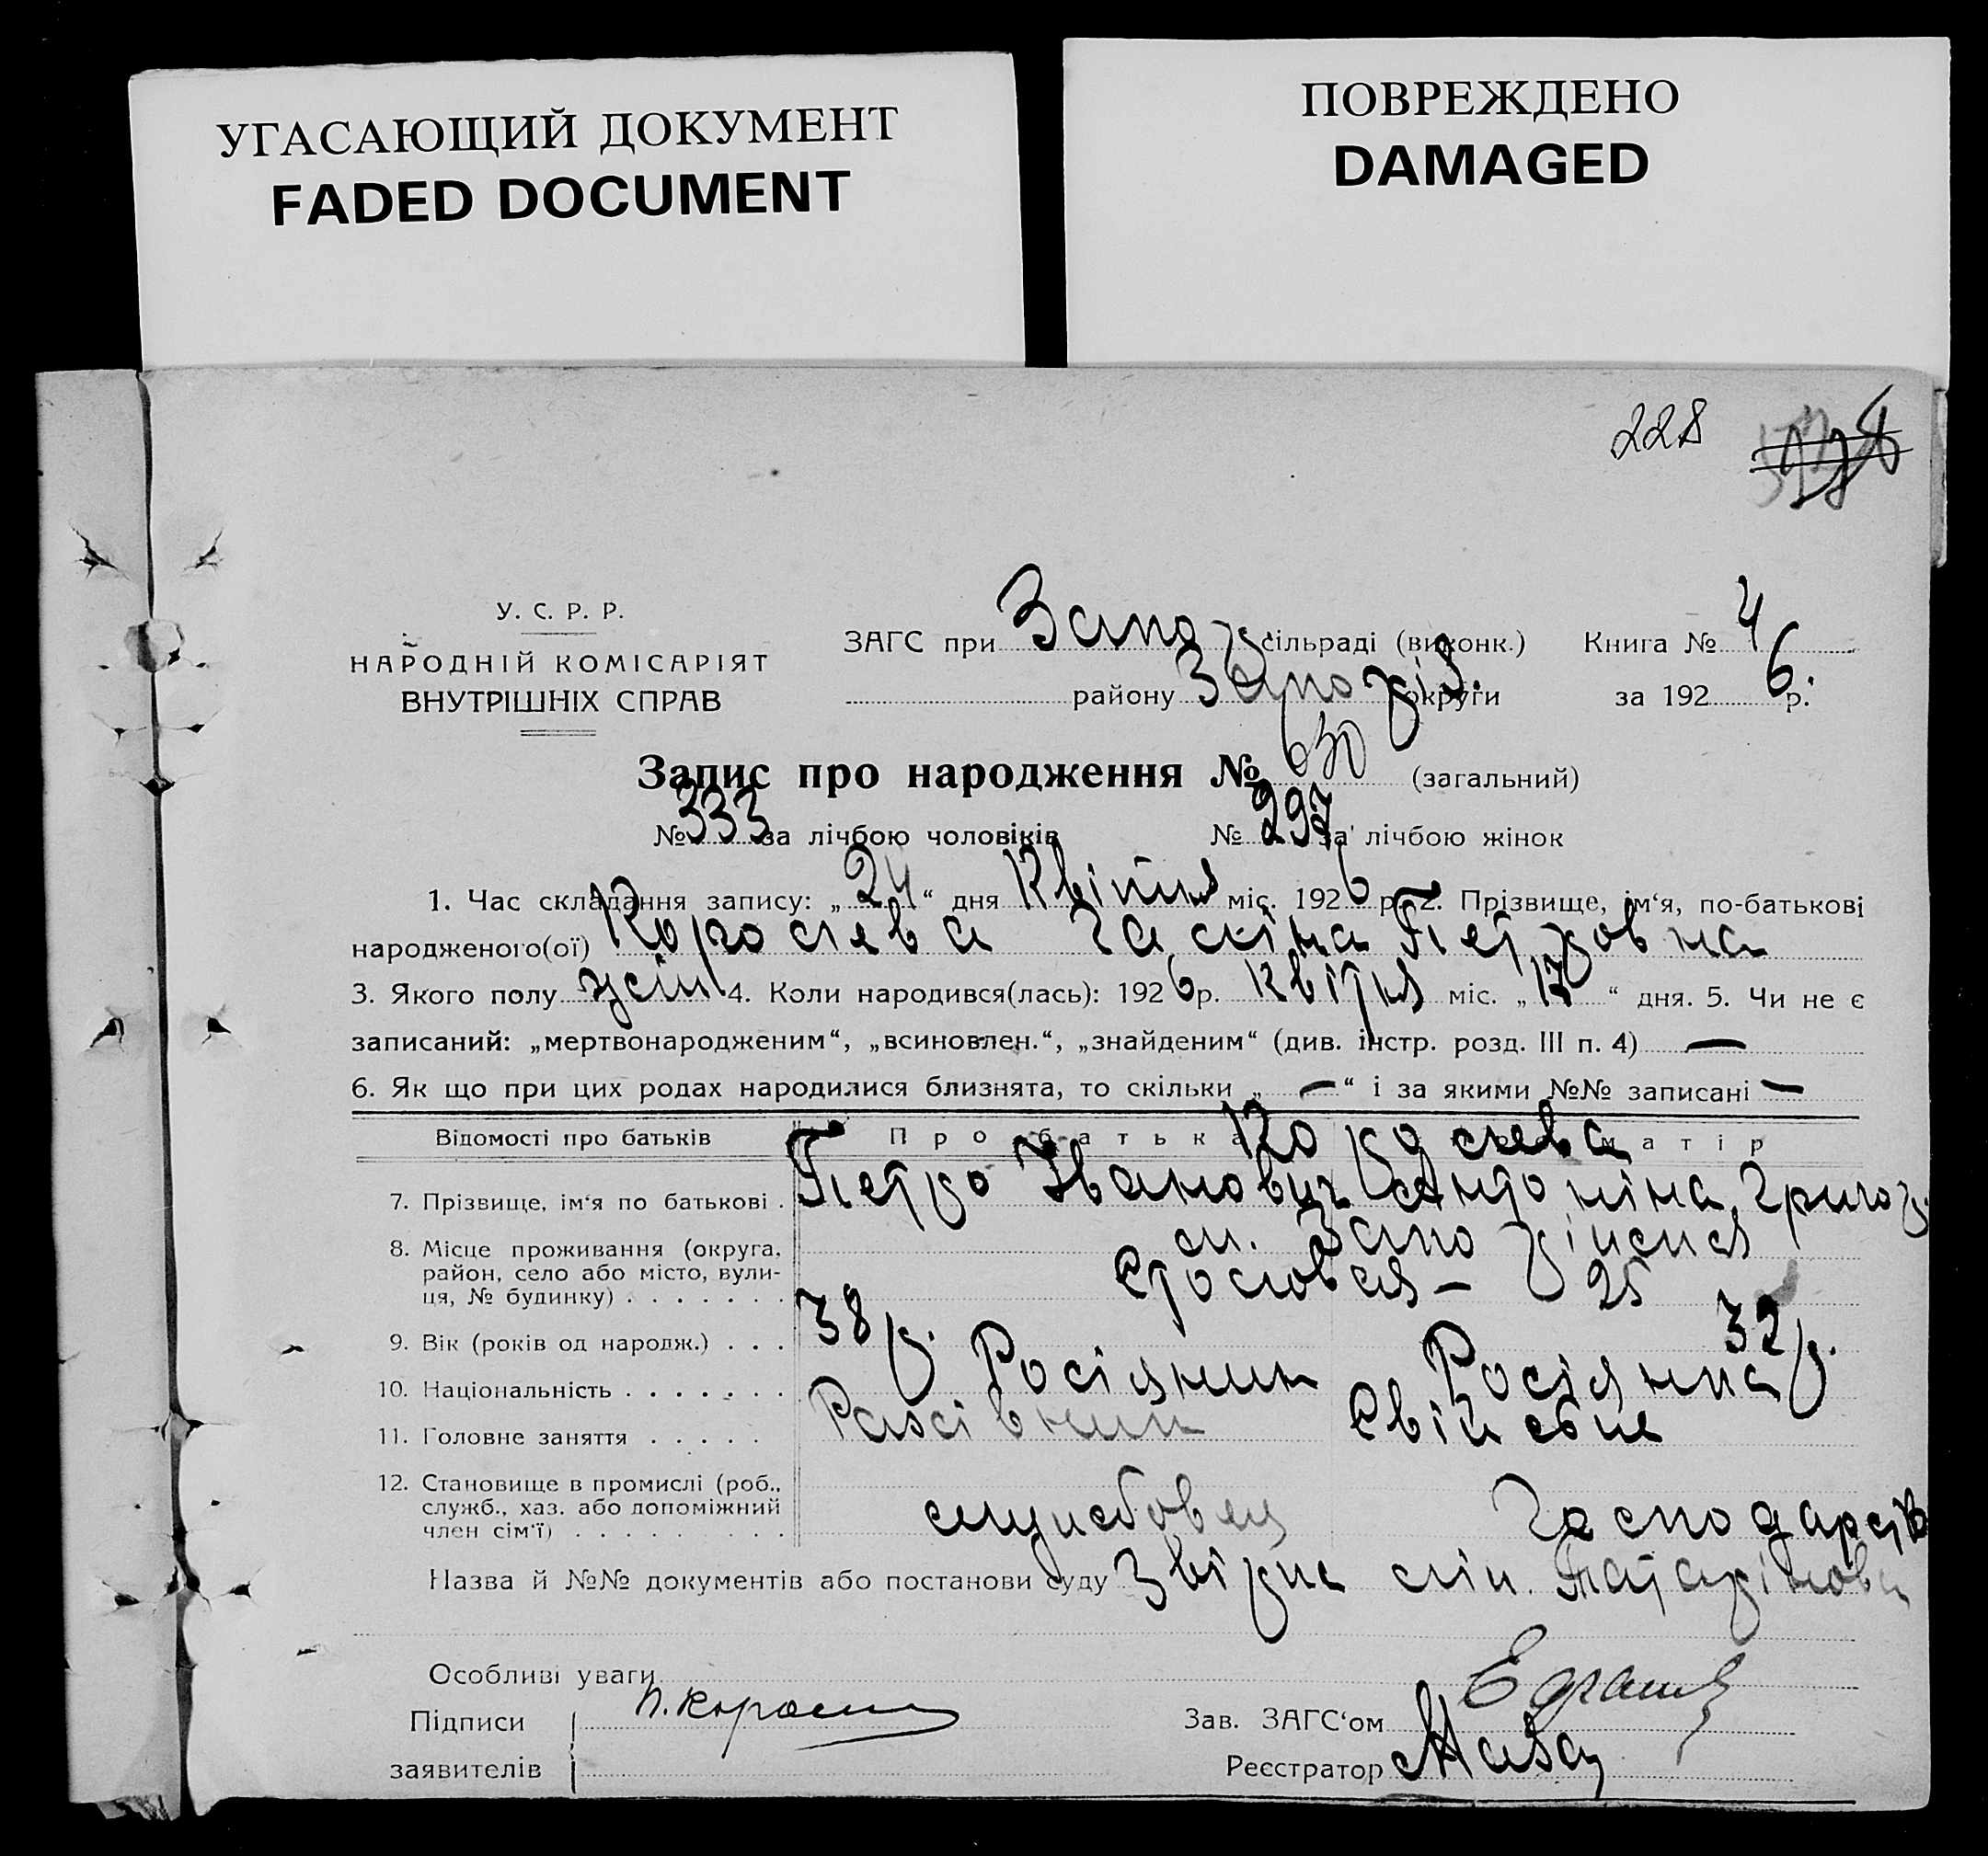 УГАСАЮЩИЙ ДОКУМЕНТ
FADED DOCUMENT
ПОВРЕЖДЕНО
DAMAGED
228
У. С. Р. Р.
НАРОДНІЙ КОМІСАРІЯТ
ВНУТРІШНІХ СПРАВ
ЗАГС при Запор сільраді (виконк.) Книга № 4
району Запоріз. округи за 1926 р.
Запис про народження № 630 (загальний)
№ 333 за лічбою чоловіків № 297 за лічбою жінок
1. Час складання запису: „24“ дня Квітня міс. 1926 р. 2. Прізвище, ім‘я, по-батькові
народженого(ої) Петровна
3. Якого полу жін 4. Коли народився(лась): 1926 р. Квітня міс. „17“ дня. 5. Чи не є
записаний: „мертвонародженим“, „всиновлен.“, „знайденим“ (див. інстр. розд. III п. 4) —
6. Як що при цих родах народилися близнята, то скільки „—“ і за якими №№ записані —
Відомості про батьків Про батька матір
7. Прізвище, ім‘я по батькові . Петро Іванович Антоніна Григор.
8. Місце проживання (округа, м. Запоріжжя
район, село або місто, вули-
ця, № будинку) . . . . . . . — 25
9. Вік (років од народж.) . . . 38 р. 32 р.
10. Національність . . . . . . . Росіянин Росіянка
11. Головне заняття . . . . .
12. Становище в промислі (роб.,
служб., хаз. або допоміжний службовец Господарств
член сім‘ї) . . . . . . . . .
Назва й №№ документів або постанови суду
Особливі уваги
Підписи
заявителів
Зав. ЗАГС‘ом
Реєстратор